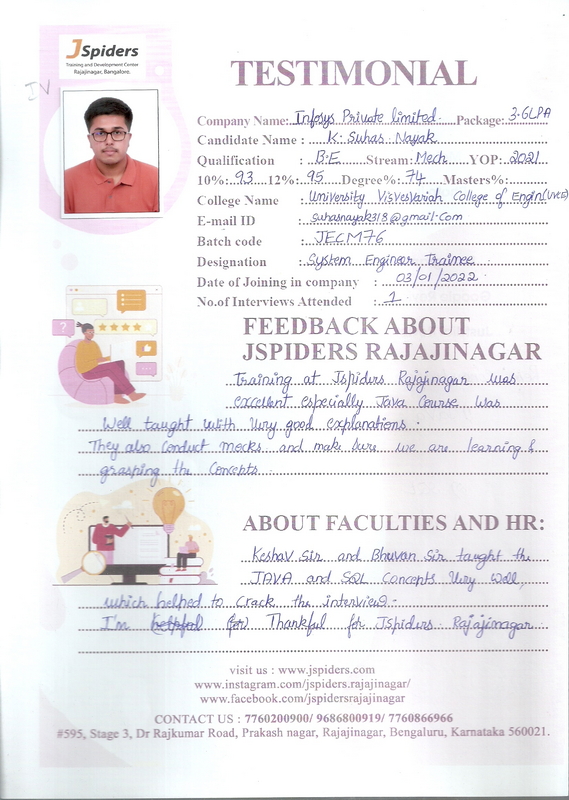 JSpiders
Training and Development Center
Rajajinagar, Bangalore.
IV
TESTIMONIAL
Company Name: Infosys Private limited. Package: 3.6LPA
Candidate Name : K. Suhas Nayak
Qualification : B.E Stream: Mech YOP: 2021
10%: 93 12%: 95 Degree%: 74 Masters%:
College Name : University Visvesvariah College of Engin(UVCE)
E-mail ID : suhasnayak318@gmail.com
Batch code : JECM76
Designation : System Engineer Trainee
Date of Joining in company : 03/01/2022
No.of Interviews Attended : 1
FEEDBACK ABOUT
JSPIDERS RAJAJINAGAR
Training at Jspiders Rajajinagar was
excellent especially Java Course was
Well taught with Very good explanations.
They also conduct mocks and make sure we are learning &
grasping the Concepts.
ABOUT FACULTIES AND HR:
Keshav Sir and Bhuvan Sir taught the
JAVA and SQL Concepts Very Well,
which helped to Crack the interview.
I'm Thankful for Jspiders Rajajinagar
visit us : www.jspiders.com
www.instagram.com/jspiders.rajajinagar/
www.facebook.com/jspidersrajajinagar
CONTACT US : 7760200900/ 9686800919/ 7760866966
#595, Stage 3, Dr Rajkumar Road, Prakash nagar, Rajajinagar, Bengaluru, Karnataka 560021.